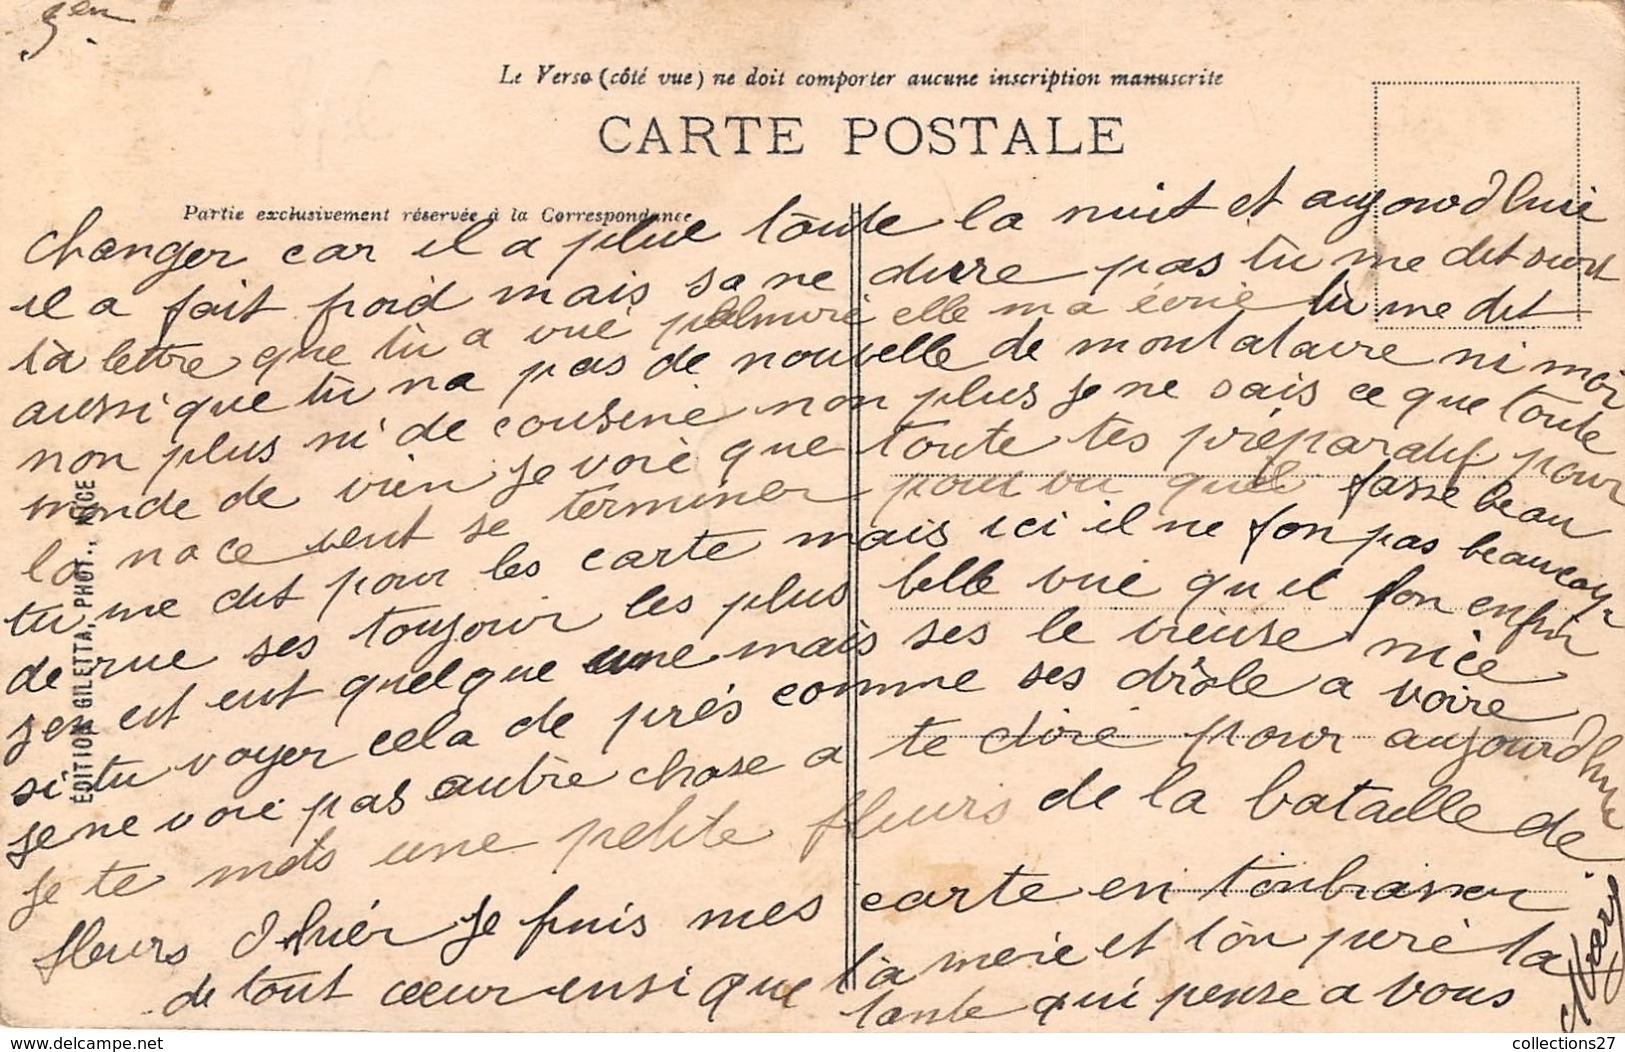 3em
Le Verso (côté vue) ne doit comporter aucune inscription manuscrite
CARTE POSTALE
Partie exclusivement réservée à la Correspondance
changer car il a plue toute la nuit et aujourd'huie
il a fait froid mais sa ne durre pas tu me dit sur
ta lettre que tu a vue palmire elle m'a écrie tu me dit
aussi que tu na pas de nouvelle de montataire ni moi
non plus ni de cousine non plus je ne sais ce que toute
monde de vien je voie que toute tes préparatif pour
la noce vent se terminer pour vu quil fasse beau
tu me dit pour les carte mais ici il ne fon pas beaucoup
de rue ses toujour les plus belle vue qu il fon enfin
jen est eut quelque une mais ses le vieuse nice
si tu voyer cela de près comme ses drôle a voire
je ne voie pas autre chose a te dire pour aujourd'hui
je te mets une petite fleurs de la bataille de
fleurs d'hier je finis mes carte en t'enbrasser
de tout cœur ensi que ta mere et ton père ta
tante qui pense a vous
Mary
ÉDITION GILETTA, PHOT., NICE
collections27